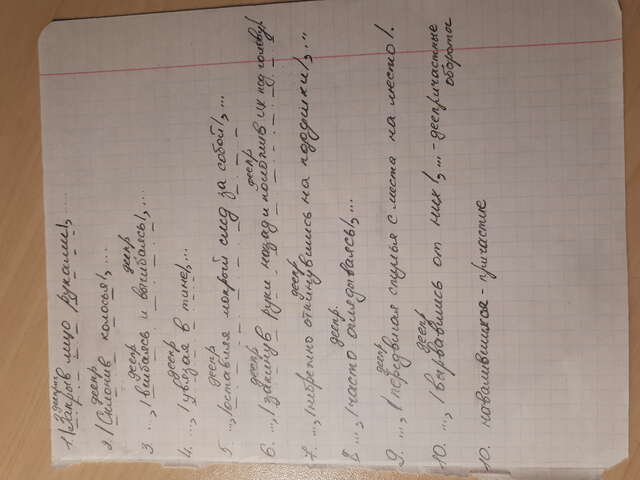 дееприч
1. |Закрыв лицо руками|, ...
деепр
2. |Склонив колосья|, ...
деепр деепр
3. ..., |вгибаясь и выгибаясь|, ...
деепр
4. ..., |увязая в тине|, ...
деепр
5. ..., |оставляя мокрый след за собой|, ...
деепр деепр
6. ..., |закинув руки назад и положив их под голову|.
деепр
7. ..., |небрежно откинувшись на подушки|, ...
деепр.
8 ..., |часто оглядываясь|, ...
деепр
9. ..., |передвигая стулья с места на место|.
деепр
10. ..., |вырвавшись от них|, ... - деепричастные
обороты
10. навалившихся - причастие